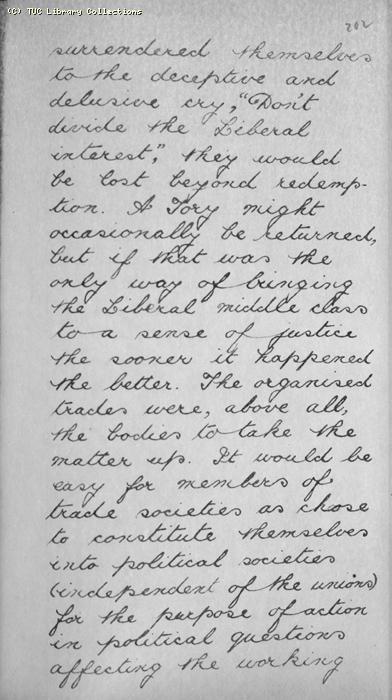 (C) TUC Library Collections
202
surrendered themselves
to the deceptive and
delusive cry, "Don't
divide the Liberal
interest", they would
be lost beyond redemp-
tion. A Tory might
occasionally be returned,
but if that was the
only way of bringing
the Liberal middle class
to a sense of justice
the sooner it happened
the better. The organised
trades were, above all,
the bodies to take the
matter up. It would be
easy for members of
trade societies as chose
to constitute themselves
into political societies
(independent of the unions)
for the purpose of action
in political questions
affecting the working